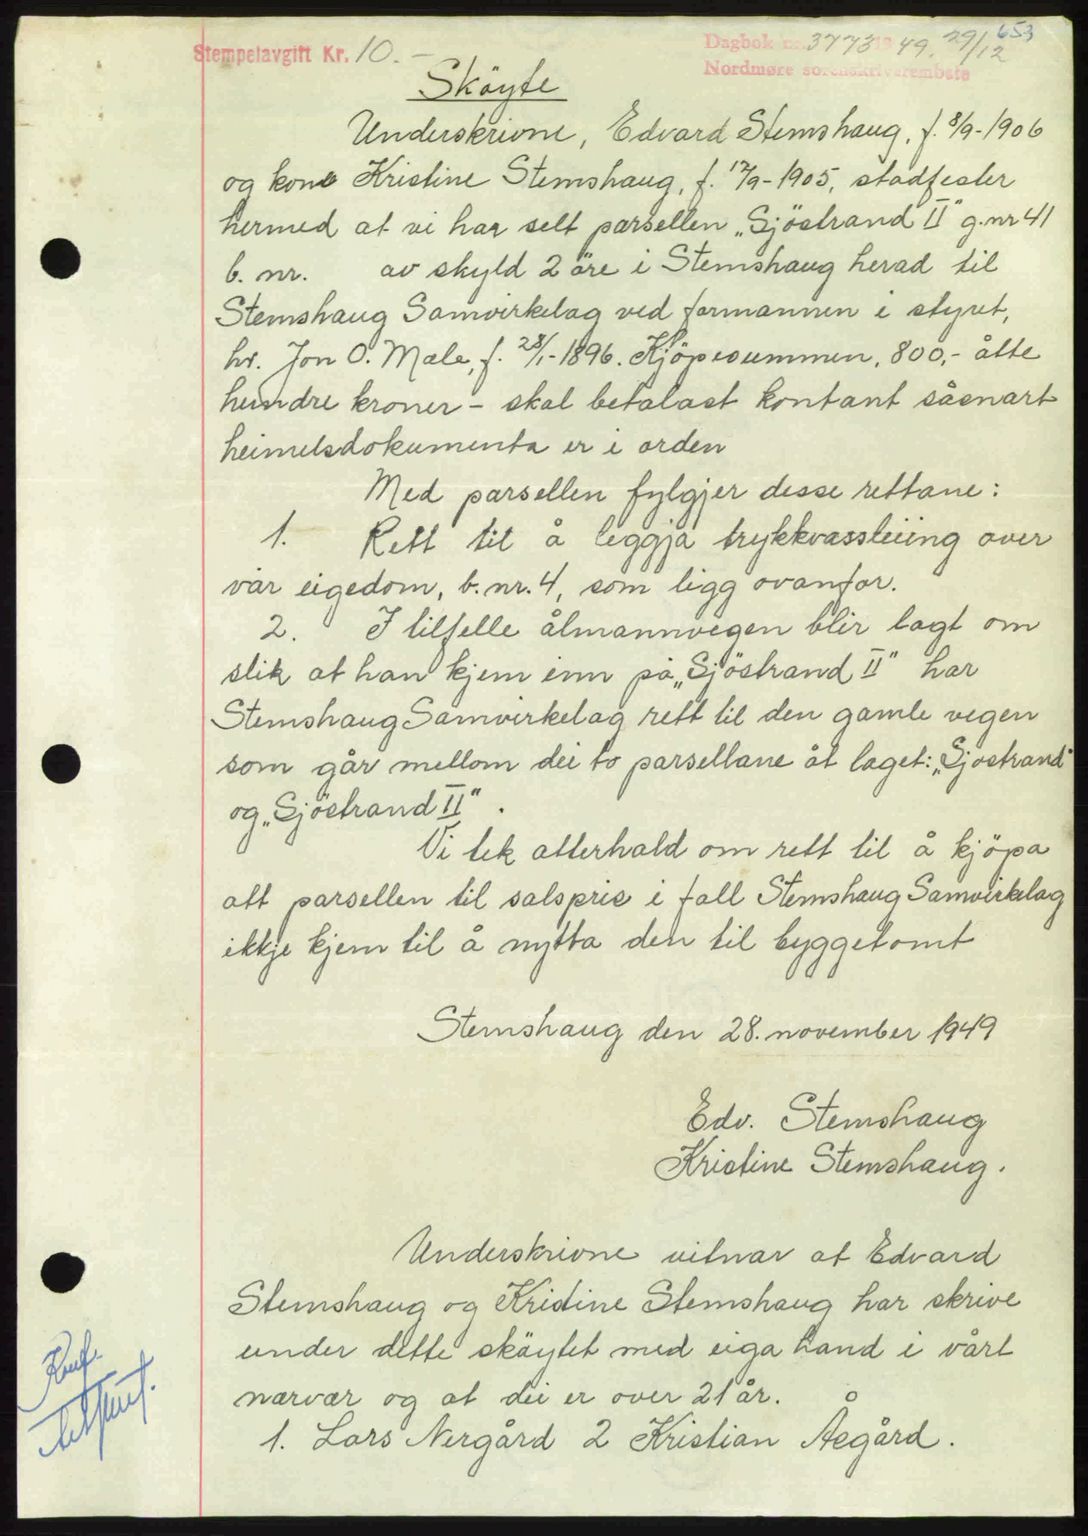 653
Stempelavgift Kr. 10.-
Dagbok nr. 3773 19 49. 29/12
Nordmøre sorenskriverembete
Sköyte
Underskrivne, Edvard Stemshaug, f. 8/9-1906
og kone Kristine Stemshaug, f. 12/9-1905, stadfester
hermed at vi har selt parsellen „Sjöstrand II" g.nr 41
b. nr. av skyld 2 öre i Stemshaug herad til
Stemshaug Samvirkelag ved formannen i styret,
hr. Jon O. Mæle, f. 28/1-1896. Kjöpesummen, 800,- åtte
hundre kroner - skal betalast kontant såsnart
heimelsdokumenta er i orden
Med parsellen fylgjer desse rettane:
1. Rett til å leggja trykkvassleiing over
vår eigedom, b.nr. 4, som ligg ovanfor.
2. I tilfelle ålmannvegen blir lagt om
slik at han kjem inn på „Sjöstrand II" har
Stemshaug Samvirkelag rett til den gamle vegen
som går mellom dei to parsellane åt laget: „Sjöstrand"
og „Sjöstrand II".
Vi tek atterhald om rett til å kjöpa
att parsellen til salspris i fall Stemshaug Samvirkelag
ikkje kjem til å nytta den til byggetomt
Stemshaug den 28. november 1949
Edv. Stemshaug
Kristine Stemshaug.
Underskrivne vitnar at Edvard
Stemshaug og Kristine Stemshaug har skrive
under dette sköytet med eiga hand i vårt
nærvær og at dei er over 21 år.
1. Lars Nergård 2 Kristian Åsgård.